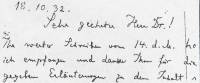 18.10.32.
Sehr geehrter Herr Dr.!
Ihr wertes Schreiben vom 14. d. M. ha
ich empfangen und danke Ihnen für die
gegeben Erläuterungen zu dem Inhalt